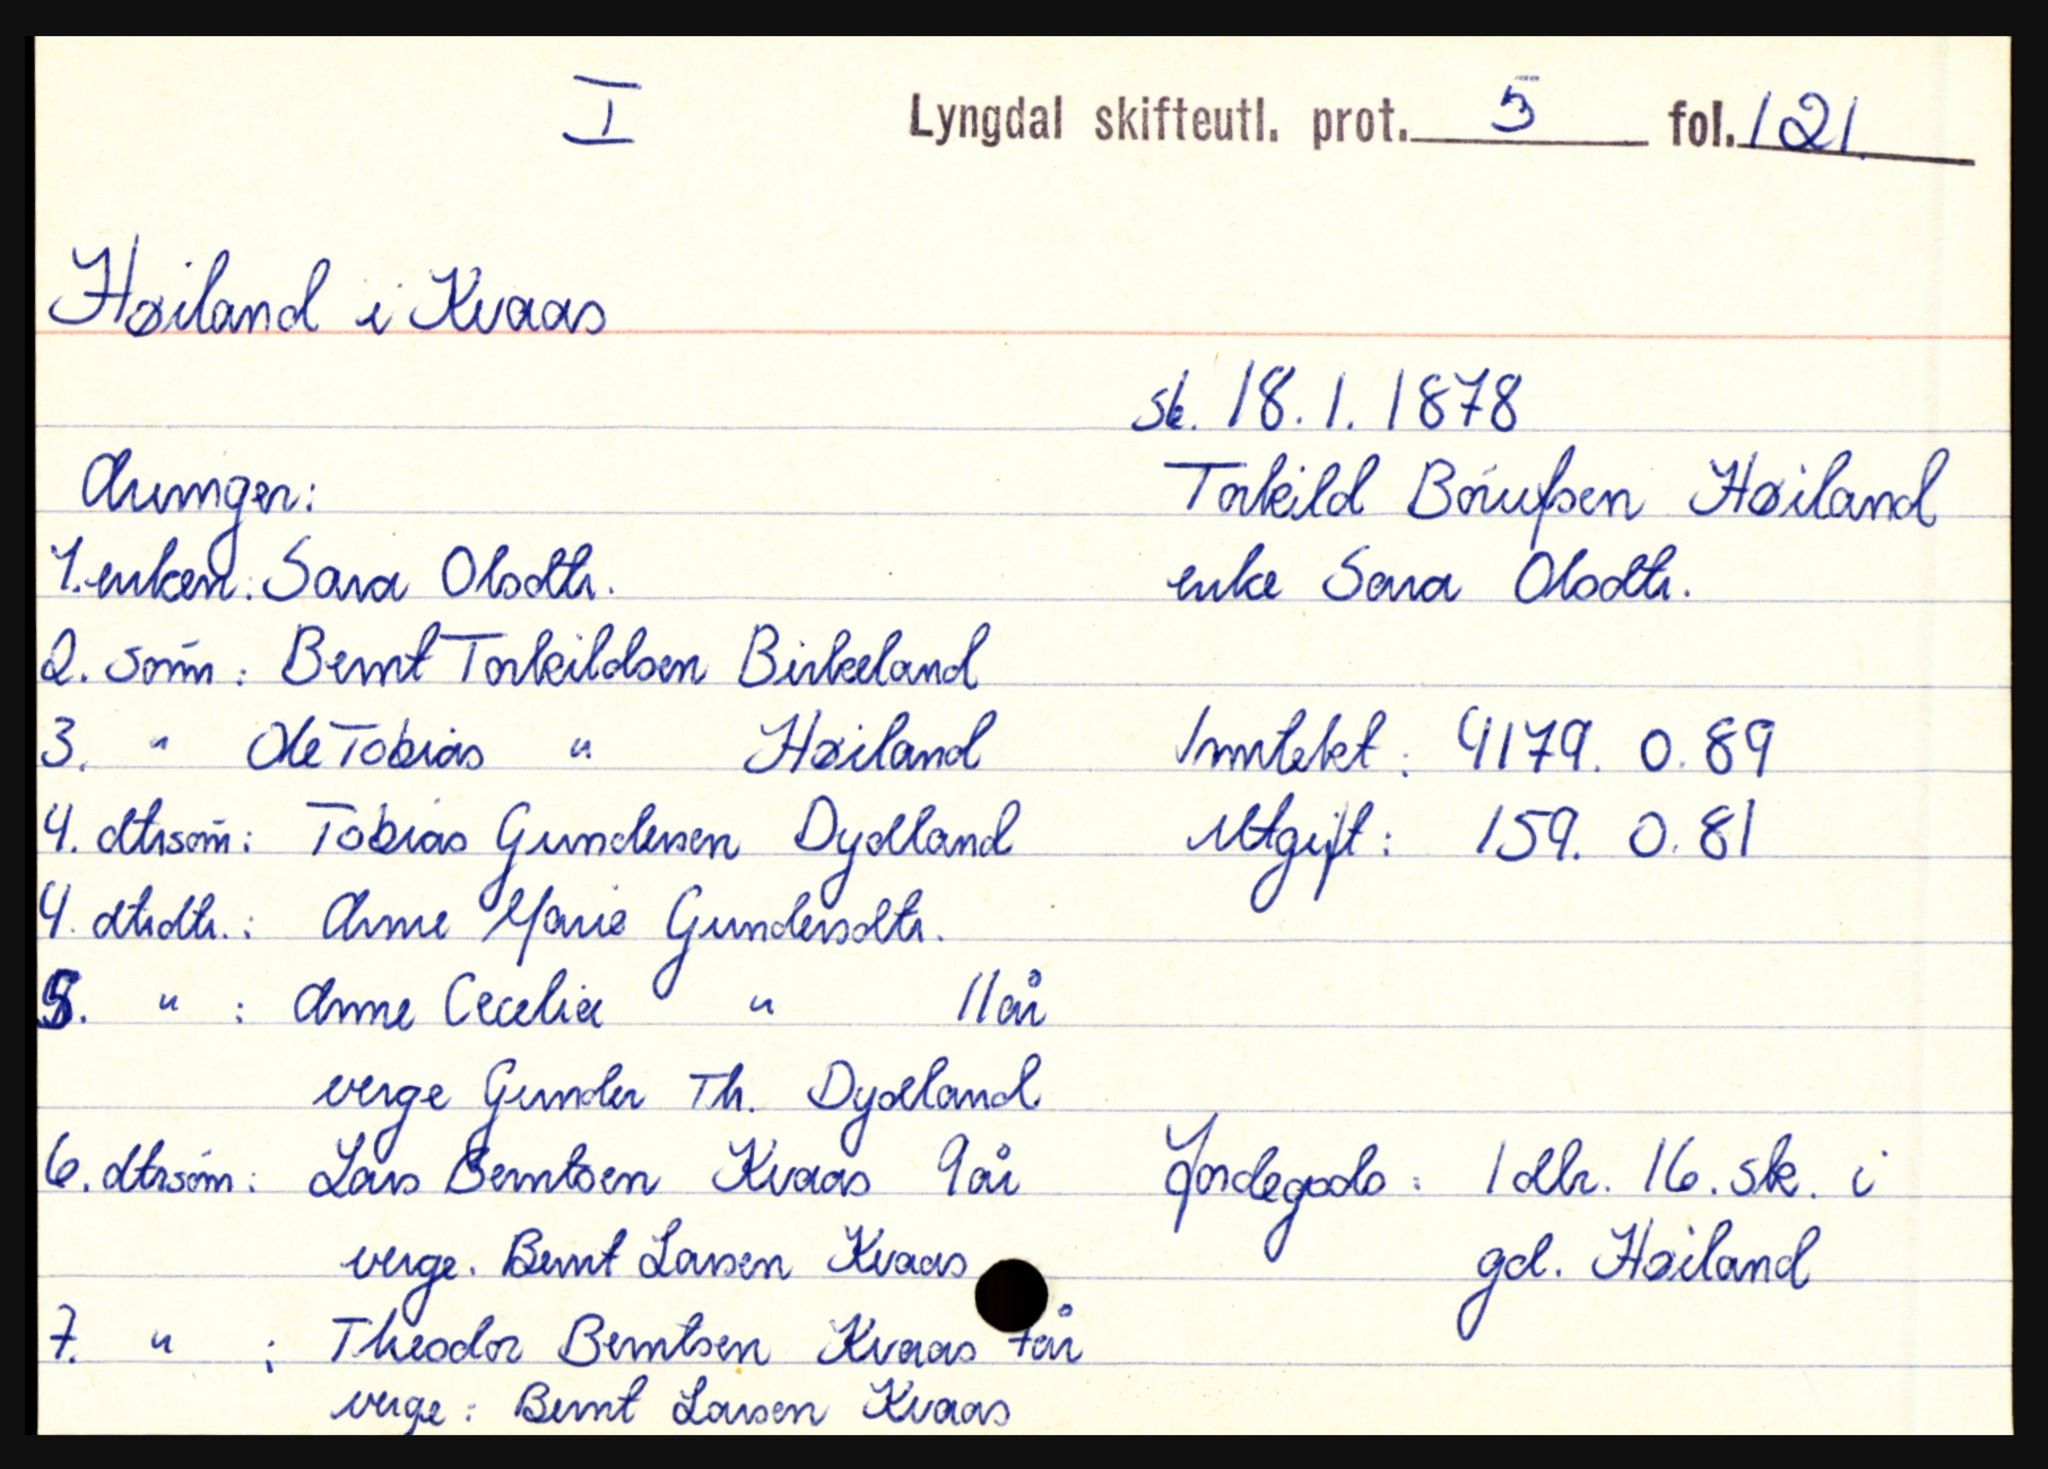 I Lyngdal skifteutl. prot. 5 fol. 121.
Høiland i Kvaas
sk. 18.1.1878
Arvinger: Torkild Bórufsen Høiland
1. enken: Sara Olsdtr. enke Sara Olsdtr.
2. sønn: Bernt Torkildsen Birkeland
3. " Ole Tobias " Høiland Inntekt: 4179. 0.89
4. dtrsønn: Tobias Gundersen Dydland Utgift: 159. 0.81
4. dtrdtr.: Anne Marie Gundersdtr.
5. " : Anne Cecelie " 11 år
verge Gunder Th. Dydland
6. dtrsønn: Lars Berntsen Kvaas 9 år Jordegods: 1 dlr. 16. sk. i
verge. Bernt Larsen Kvaas gd. Høiland
7. " : Theodor Berntsen Kvaas 7 år
verge: Bernt Larsen Kvaas